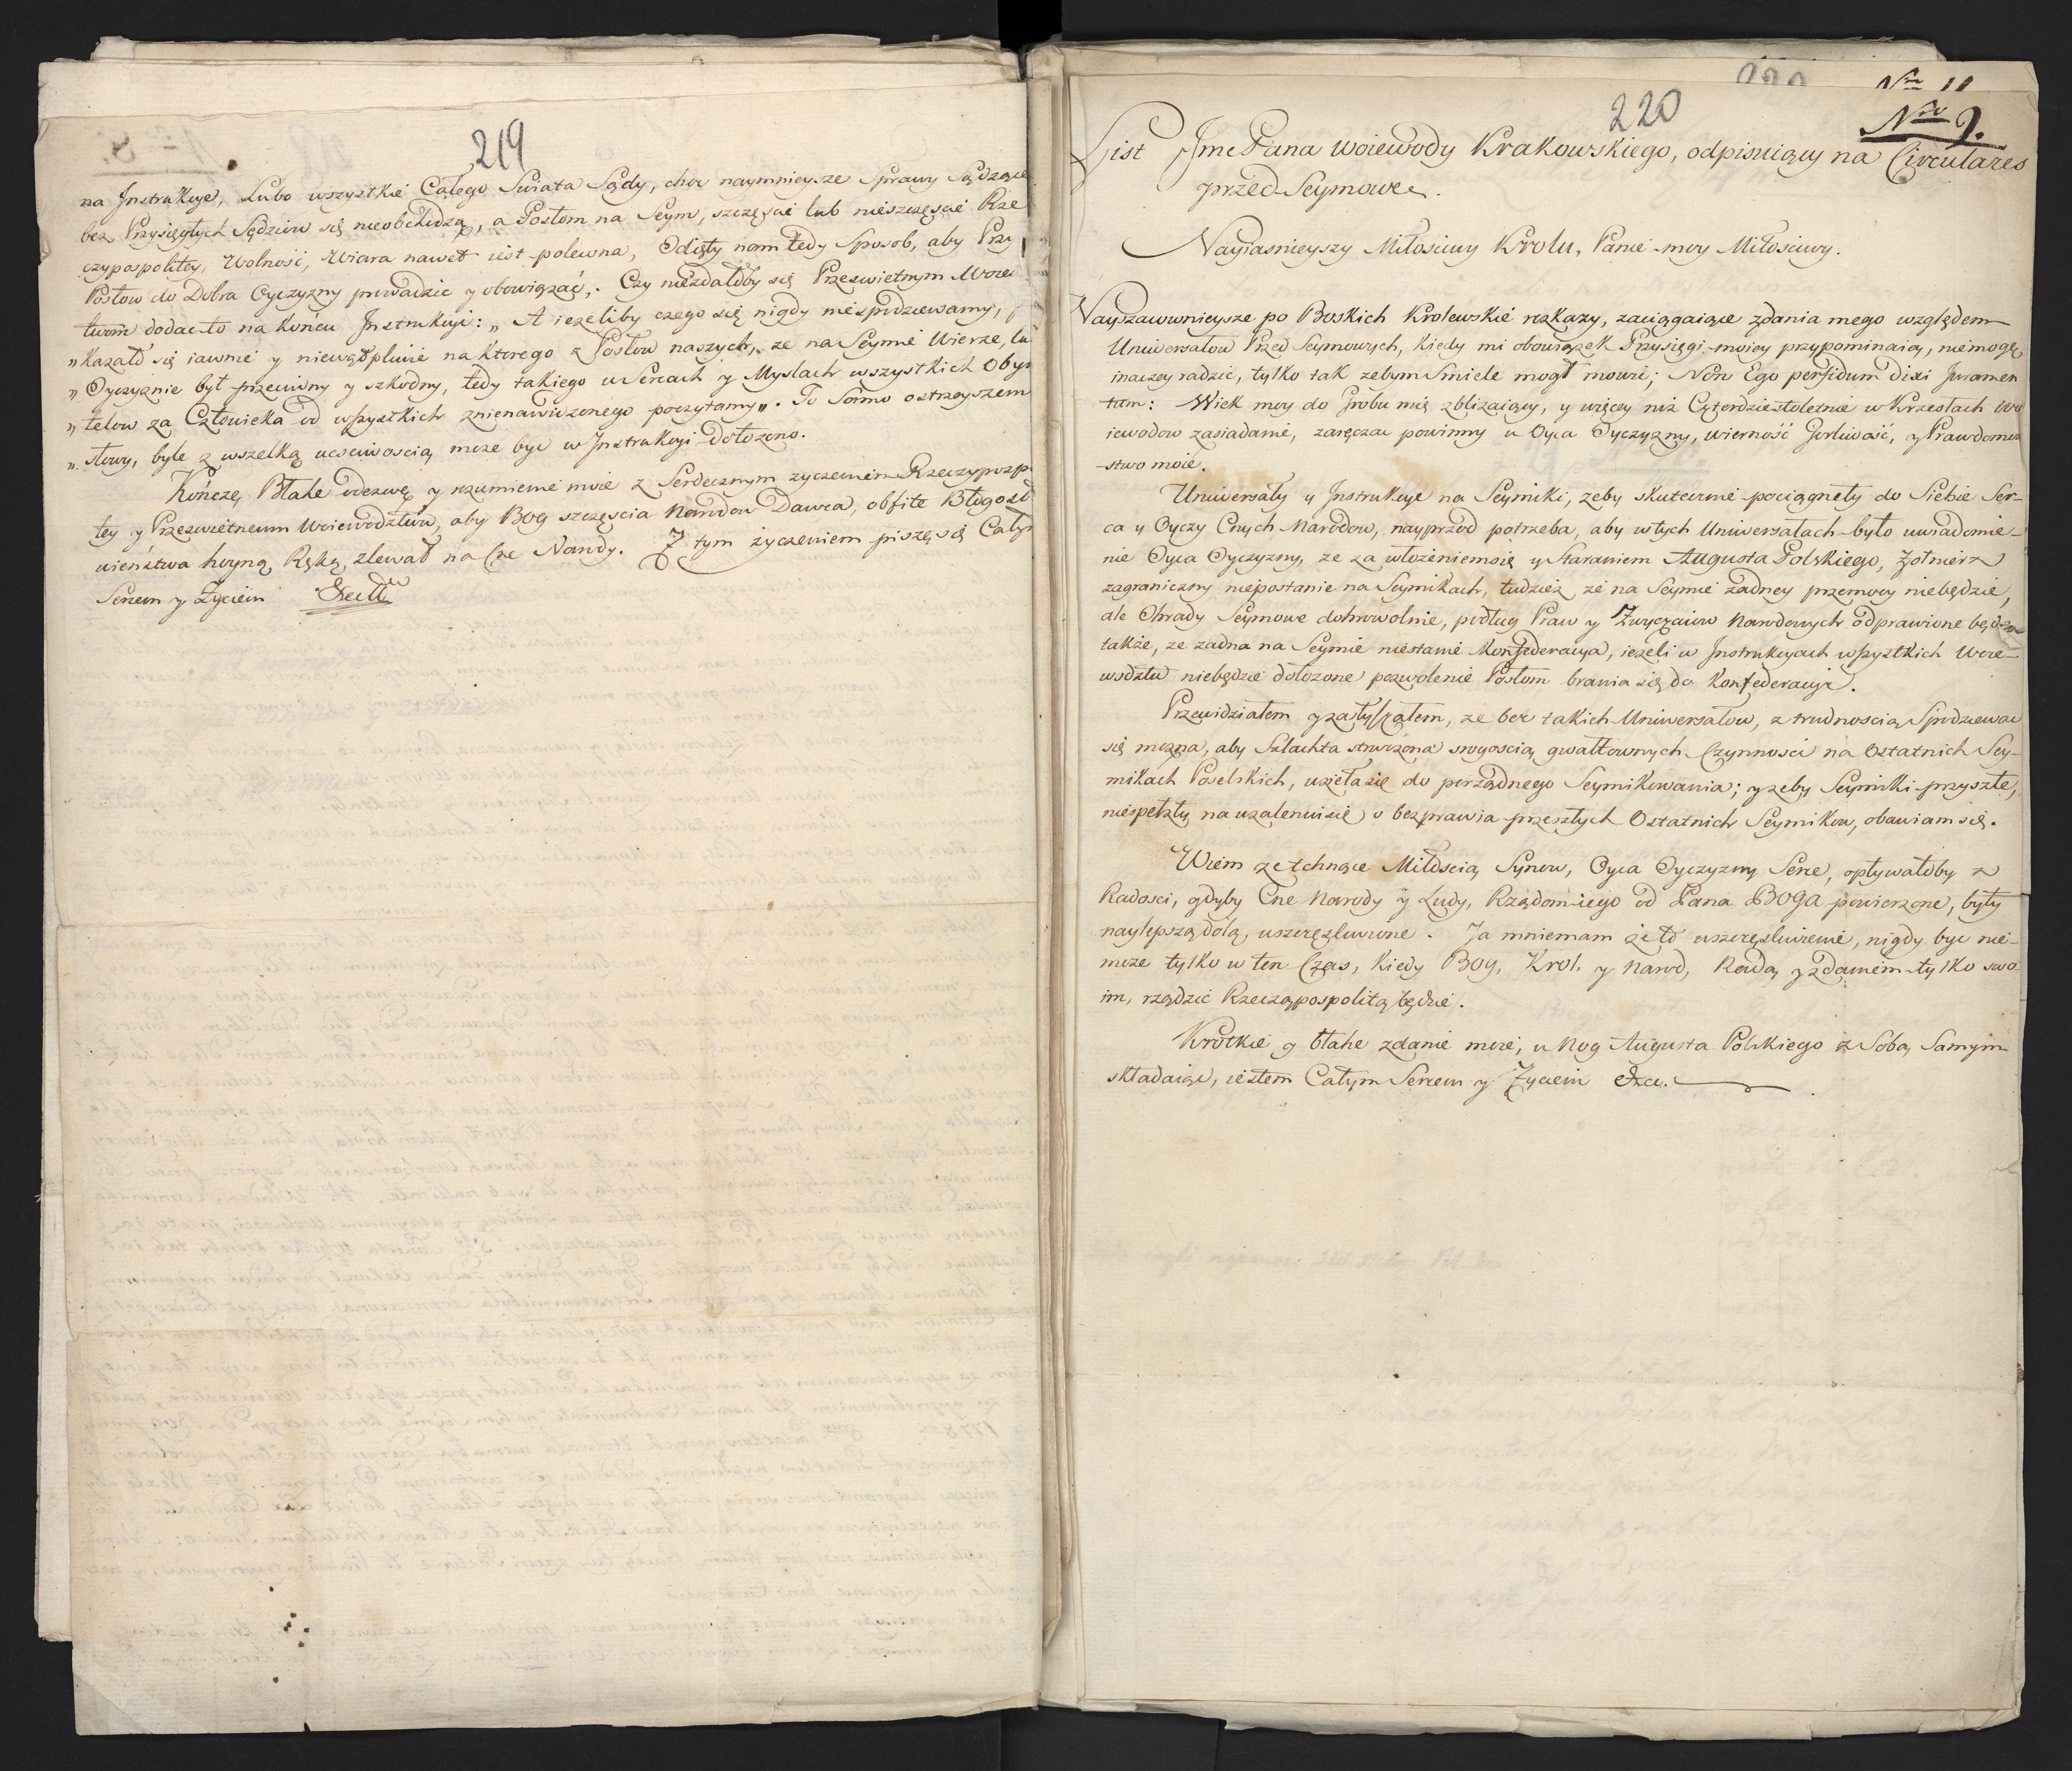 219
na Instrukcye, Lubo wszystkie Całego Swiata Sądy, choc naymnieysze Sprawy Sądzące
bez Przysięgłych Sędziow się nieobchodzą, a Posłom na Seym, szczęscie lub nieszczęscie Rze
czypospolitey, Wolność, Wiara nawet iest polewna, Odięty nam tedy Sposob, aby Przy
Posłow do Dobra Oyczyzny prowadzic y obowiązać. Czy niezdałoby się Przeswietnym Woie
twom dodac to na końcu Instrukcyi: „A iezeliby czego się nigdy niespodziewamy,
„kazało się iawnie y niewątpliwie na ktorego z Posłow naszych, ze na Seymie Wierze, lu
„Oyczyznie był przeciwny y szkodny, tedy takiego w Sercach y Myslach wszystkich Oby
„telow za Człowieka od wszystkich znienawidzonego poczytamy„. To Samo ostrzeyszem
„słowy, byle z wszelką ucsciwoscią, moze byc w Instrukcyi dołozono.
Kończę Błahe odezwę y rozumienie moie z Serdecznym zyczeniem Rzeczyposp
tey y Przeswietneum Woiewodztwu, aby Bog szczęscia Narodow Dawca, obfite Błogosł
wieństwa hoyną Ręką zlewał na Cne Narody. Z tym życzeniem piszę się Cały
Sercem y Zyciem
220
Nro 11
Nro 9.
List Jmc Pana Woiewody Krakowskiego, odpisuiący na Circulares
przed Seymowe.
Nayiasnieyszy Miłosciwy Krolu, Panie moy Miłosciwy.
Nayszanownieysze po Boskich Krolewskie rozkazy, zaciągaiące zdania mego względem
Uniwersałow Przed Seymowych, kiedy mi obowiązek Przysięgi moiey przypominaią, niemogę
inaczey radzic, tylko tak zebym Smiele mogł mowic; Non Ego perfidum dixi Juramen
tum: Wiek moy do Grobu mię zblizaiący, y więcey niz Czterdziestoletnie w Krzesłach Wo
iewodow zasiadanie, zaręczac powinny u Oyca Oyczyzny, wierność Gorliwość, y Prawdomow
-stwo moie.
Uniwersały y Instrukcye na Seymiki, zeby skutecznie pociągnęły do Siebie Ser-
ca y Oyczy Cnych Narodow, nayprzod potrzeba, aby w tych Uniwersałach było uwiadomie-
nie Oyca Oyczyzny, ze za włozeniem się y Staraniem Augusta Polskiego, Zołnierz
zagraniczny niepostanie na Seymikach, tudziez ze na Seymie zadney przemocy niebędzie,
ale Obrady Seymowe dobrowolnie, podług Praw y Zwyczaiow Narodowych odprawione będą
takze, ze zadna na Seymie niestanie Konfederacya, iezeli w Instrukcyach wszystkich Woie-
wodztw niebędzie dołozone pozwolenie Posłom brania się do Konfederacyi.
Przewidziałem y zasłyszałem, ze bez takich Uniwersałow, z trudnoscią Spodziewac
się mozna, aby Szlachta strwozona srogoscią gwałtownych Czynnosci na Ostatnich Sey-
mikach Poselskich, wzieła się do porządnego Seymikowania; y zeby Seymiki przyszłe,
niespełzły na uzaleniu się o bezprawia przeszłych Ostatnich Seymikow, obawiam się.
Wiem ze tchnące Miłoscią Synow, Oyca Oyczyzny Serce, opływałoby w
Radosci, gdyby Cne Narody y Ludy, Rządom iego od Pana BOGA powierzone, były
naylepszą dolą uszczęsliwione. Ja mniemam ze to uszczęsliwienie, nigdy byc nie-
moze tylko w ten Czas, kiedy Bog, Krol. y Narod, Radą y zdaniem tylko swo
im, rządzic Rzecząpospolitą będzie.
Krotkie y błahe zdanie moie, u Nog Augusta Polskiego z Sobą Samym
składaiąc, iestem Całym Sercem y Zyciem &c.